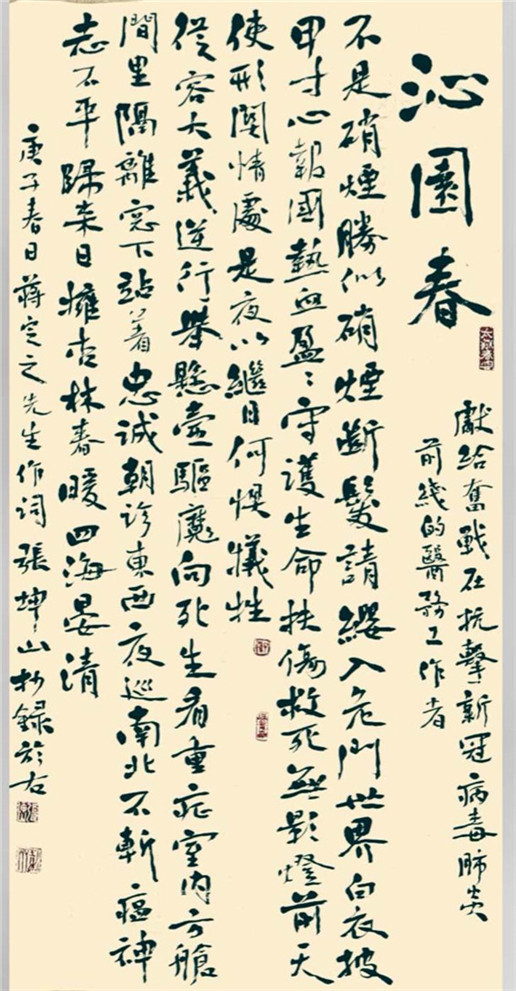 沁園春
獻給奮戰在抗擊新冠病毒肺炎
前綫的醫務工作者
不是硝煙勝似硝煙斷髮請纓入危門世界白衣披
甲寸心報國熱血盈ミ守護生命扶傷救死無影燈前天
使形關情處是夜以繼日何懼犧牲
從容大義逆行舉懸壺驅魔向死生看重症室内方艙
間里隔離窓下站着忠诚朝診東西夜巡南北不斬瘟神
志不平歸来日擁杏林春暖四海晏清
庚子春日蔣定之先生作词張坤山抄録於右